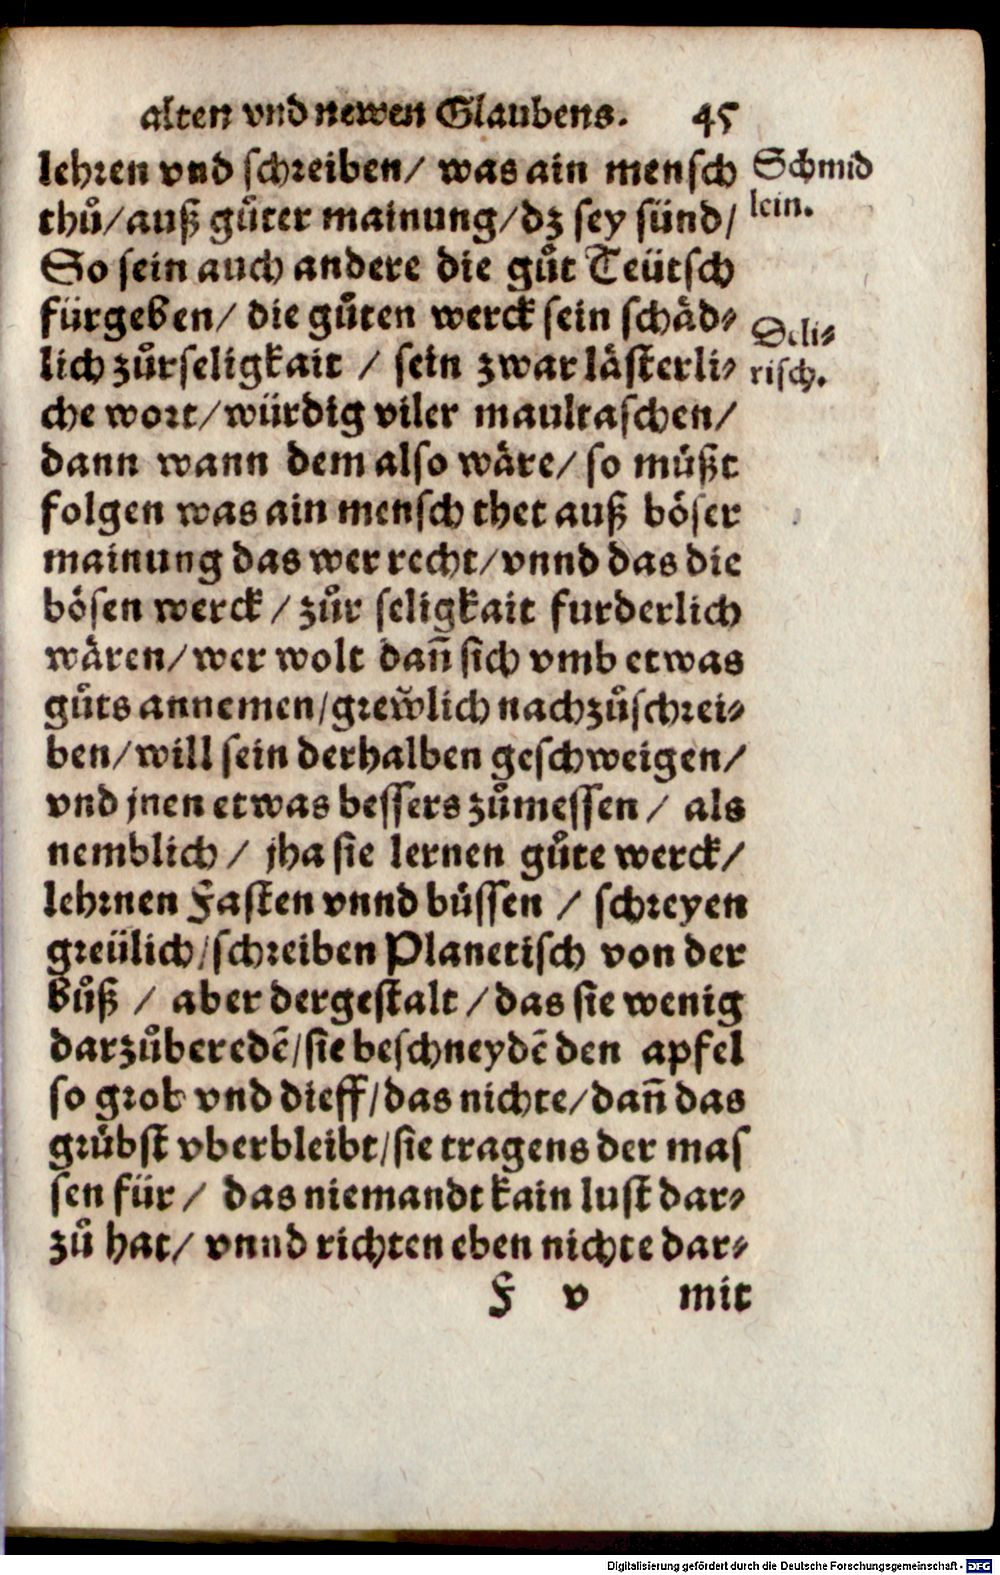 alten vnd newen Glaubens. 45
lehren vnd schreiben/ was ain mensch
Schmid
thuͦ/auß guͦter mainung/dz sey sünd/
lein.
So sein auch andere die guͦt Teütsch
fürgeben/ die guͦten werck sein schaͤd⸗
Seli⸗
lich zuͦrseligkait / sein zwar laͤsterli⸗
risch.
che wort/würdig viler maultaschen/
dann wann dem also waͤre/ so muͤßt
folgen was ain mensch thet auß boͤser
mainung das wer recht/vnnd das die
boͤsen werck / zuͦr seligkait furderlich
waͤren/wer wolt dañ sich vmb etwas
guͦts annemen/grew̆lich nachzuͦschrei⸗
ben/will sein derhalben geschweigen/
vnd jnen etwas bessers zuͦmessen / als
nemblich / jha sie lernen guͦte werck/
lehrnen Fasten vnnd buͤssen / schreyen
greülich/schreiben Planetisch von der
buͦß / aber dergestalt / das sie wenig
darzuͦberedẽ/sie beschneydẽ den apfel
so grob vnd dieff/das nichte/dañ das
gruͤbst vberbleibt/sie tragens der mas
sen für / das niemandt kain lust dar⸗
zuͦ hat/ vnnd richten eben nichte dar⸗
F v mit
Digitalisierung gefördert durch die Deutsche Forschungsgemeinschaft - DFG